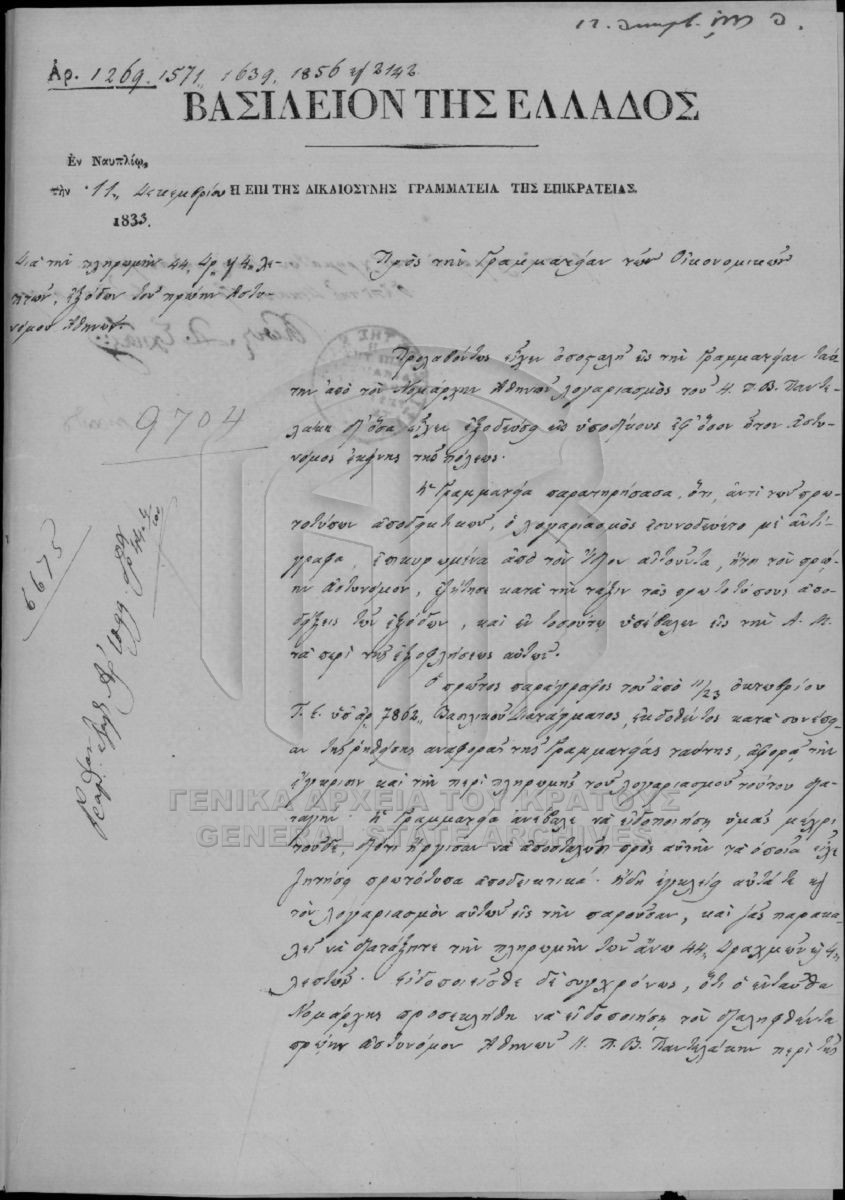 Ἀρ. 1269. 1571. 1639. 1856 κ 2142.
ΒΑΣΙΛΕΙΟΝ ΤΗΣ ΕΛΛΑΔΟΣ
Ἐν Ναυπλίῳ,
τὴν 11, Δεκεμβρίου Η ΕΠΙ ΤΗΣ ΔΙΚΑΙΟΣΥΝΗΣ ΓΡΑΜΜΑΤΕΙΑ ΤΗΣ ΕΠΙΚΡΑΤΕΙΑΣ.
1833.
Διὰ τὴν πληρωμὴν 44, Δρ κ 4, λε-
πτῶν, ἐξόδων τοῦ πρώην Ἀστυ-
νόμου Ἀθηνῶν.
Πρὸς τὴν Γραμματείαν τῶν Οἰκονομικῶν
9704
6675
Προλαβόντως εἶχεν ἀποσταλῆ εἰς τὴν Γραμματείαν ταύ
την ἀπὸ τὸν Νομάρχην Ἀθηνῶν λογαριασμὸς τοῦ Κ. Π. Β. Παντε-
λάκη δι' ὅσα εἶχεν ἐξοδεύσῃ εἰς ὑποδίκους ἐφ' ὅσον ἦτον Ἀστυ-
νόμος ἐκείνης τῆς πόλεως.
Ἡ Γραμματεία παρατηρήσασα, ὅτι, ἀντὶ τῶν πρω-
τοτύπων ἀποδεικτικῶν, ὁ λογαριασμὸς ἐσυνοδεύετο μὲ ἀντί-
γραφα, ἐπικυρωμένα ἀπὸ τὸν ἴδιον αἰτοῦντα, ἤτοι τὸν πρώ-
ην Ἀστυνόμον, ἐζήτησε κατὰ τὴν τάξιν τὰς πρωτοτύπους ἀπο-
δείξεις τῶν ἐξόδων, καὶ ἐν τοσούτῳ ὑπέβαλεν εἰς τὴν Α. Μ.
τὰ περὶ τῆς ἐξοφλήσεως αὐτῶν.
Ὁ πρῶτος παράγραφος τοῦ ἀπὸ 11/23 ὀκτωβρίου
Τ. ἔ. ὑπ' ἀρ. 7862, Βασιλικοῦ Διατάγματος, ἐκδοθέντος κατὰ συνέπει-
αν τῆς ῥηθείσης ἀναφορᾶς τῆς Γραμματείας ταύτης, ἀφορᾷ τὴν
ἔγκρισιν καὶ τὴν περὶ πληρωμῆς τοῦ λογαριασμοῦ τούτου δια-
ταγήν. Ἡ Γραμματεία ἀνέβαλε νὰ εἰδοποιήσῃ ὑμᾶς μέχρι
τοῦδε, διότι ἤργησαν νὰ ἀποσταλῶσι πρὸς αὐτὴν τὰ ὁποῖα εἶχε
ζητήσῃ πρωτότυπα ἀποδεικτικά. Ἤδη ἐγκλείει αὐτά τε κ
τὸν λογαριασμὸν αὐτῶν εἰς τὴν παροῦσαν, καὶ σᾶς παρακα-
λεῖ νὰ διατάξητε τὴν πληρωμὴν τῶν ἄνω 44, Δραχμῶν κ 4,
λεπτῶν. Εἰδοποιεῖσθε δὲ συγχρόνως, ὅτι ὁ ἐνταῦθα
Νομάρχης προσεκλήθη νὰ εἰδοποιήσῃ τὸν διαληφθέντα
πρώην ἀστυνόμον Ἀθηνῶν Κ. Π. Β. Παντελάκην περὶ τῆς
ΓΕΝΙΚΑ ΑΡΧΕΙΑ ΤΟΥ ΚΡΑΤΟΥΣ
GENERAL STATE ARCHIVES